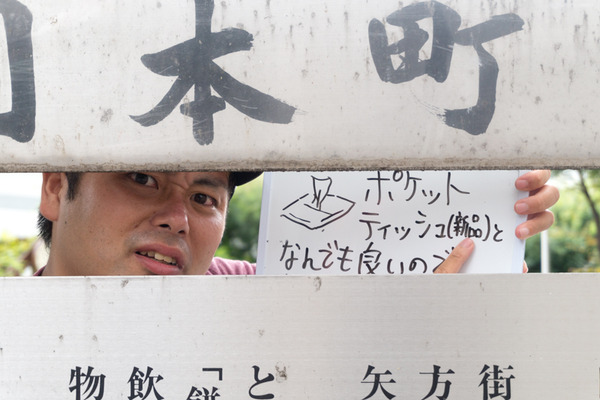 本町
ポケット
ティッシュ(新品)と
なんでも良いので
街
方
矢
と
「
飲
物